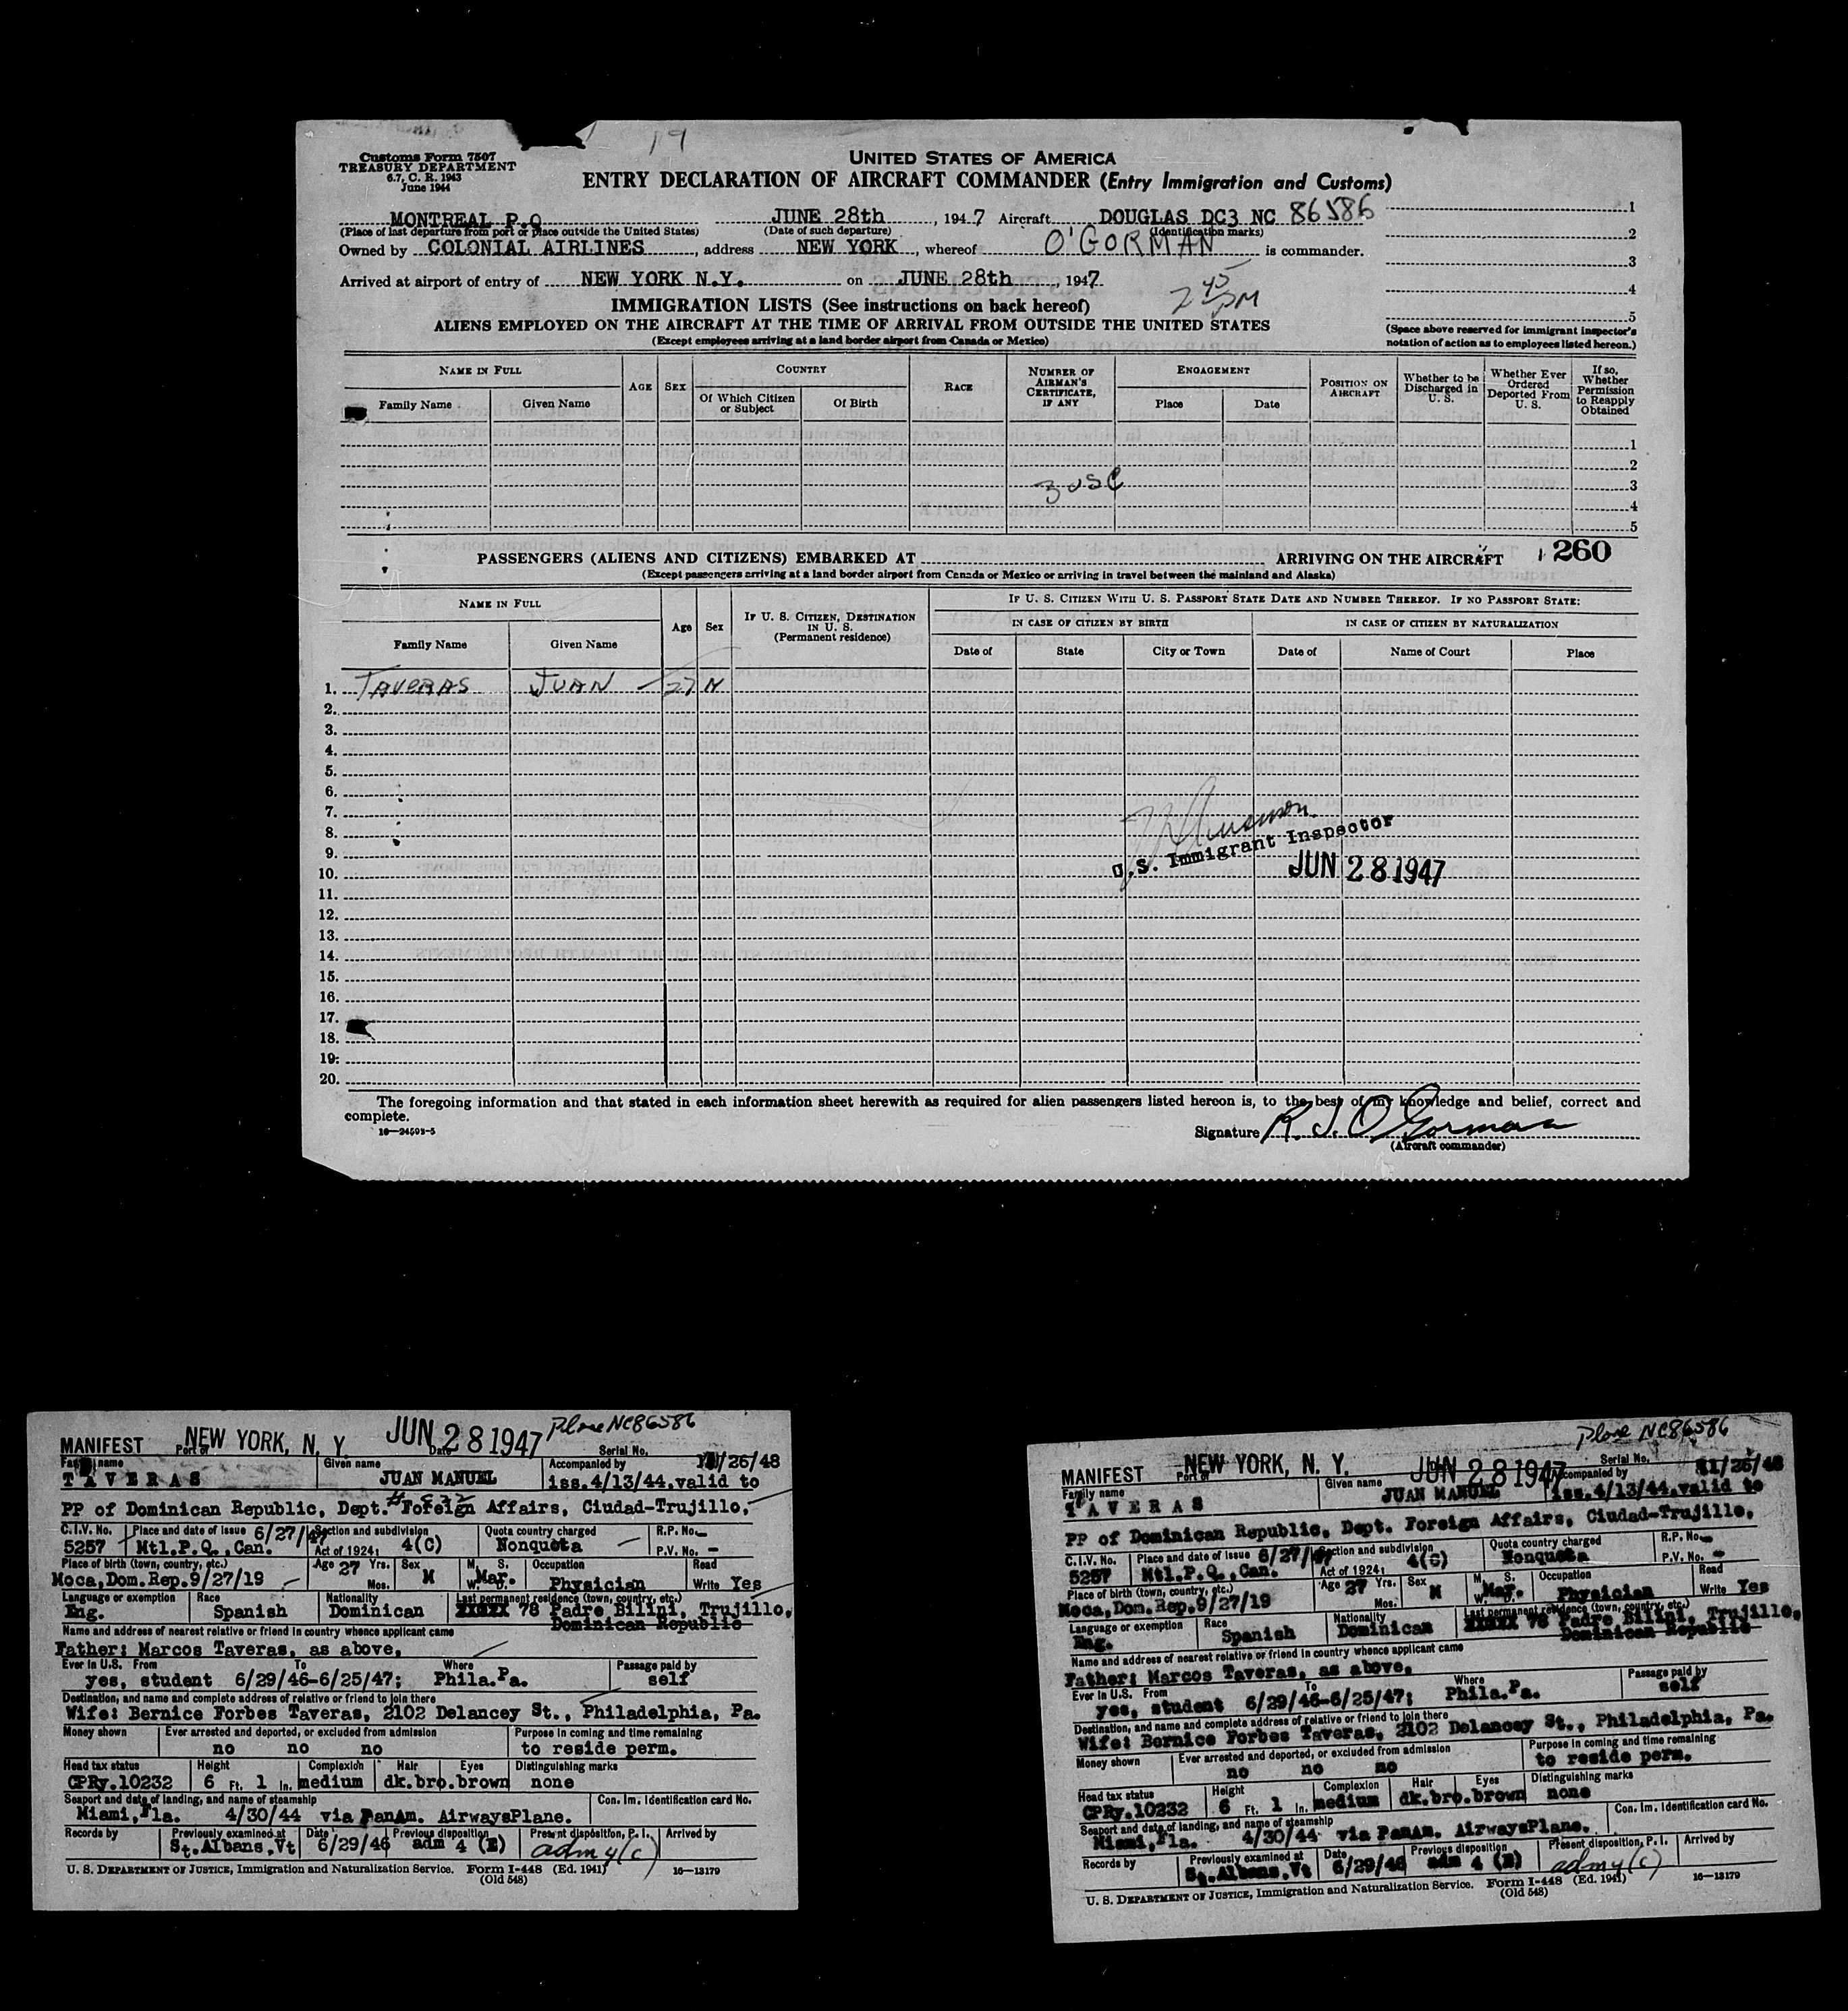 19
Customs Form 7507
TREASURY DEPARTMENT
6.7, C. R. 1943
June 1944
UNITED STATES OF AMERICA
ENTRY DECLARATION OF AIRCRAFT COMMANDER (Entry Immigration and Customs)
MONTREAL P.Q JUNE 28th, 1947 Aircraft DOUGLAS DC3 NC 86586 1
(Place of last departure from port or place outside the United States) (Date of such departure) (Identification marks) 2
Owned by COLONIAL AIRLINES, address NEW YORK, whereof O'GORMAN is commander.
3
Arrived at airport of entry of NEW YORK N.Y. on JUNE 28th, 1947
4
2 45 PM
IMMIGRATION LISTS (See instructions on back hereof)
5
ALIENS EMPLOYED ON THE AIRCRAFT AT THE TIME OF ARRIVAL FROM OUTSIDE THE UNITED STATES
(Except employees arriving at a land border airport from Canada or Mexico)
(Space above reserved for immigrant inspector's
notation of action as to employees listed hereon.)
NAME IN FULL AGE SEX COUNTRY RACE NUMBER OF AIRMAN'S CERTIFICATE, IF ANY ENGAGEMENT POSITION ON AIRCRAFT Whether to be Discharged in U. S. Whether Ever Ordered Deported From U. S. If so, Whether Permission to Reapply Obtained
Family Name Given Name Of Which Citizen or Subject Of Birth Place Date
1
2
3 USC 3
4
5
PASSENGERS (ALIENS AND CITIZENS) EMBARKED AT ARRIVING ON THE AIRCRAFT 1 260
(Except passengers arriving at a land border airport from Canada or Mexico or arriving in travel between the mainland and Alaska)
NAME IN FULL Age Sex IF U. S. CITIZEN, DESTINATION IN U. S. (Permanent residence) IF U. S. CITIZEN WITH U. S. PASSPORT STATE DATE AND NUMBER THEREOF. IF NO PASSPORT STATE:
IN CASE OF CITIZEN BY BIRTH IN CASE OF CITIZEN BY NATURALIZATION
Family Name Given Name Date of State City or Town Date of Name of Court Place
1. TAVERAS JUAN 27 M
2.
3.
4.
5.
6.
7.
8.
9.
U.S. Immigrant Inspector
10.
JUN 28 1947
11.
12.
13.
14.
15.
16.
17.
18.
19.
20.
The foregoing information and that stated in each information sheet herewith as required for alien passengers listed hereon is, to the best of my knowledge and belief, correct and
complete.
16—24593-5
Signature R. J. O'Gorman
(Aircraft commander)
Plane NC86586
MANIFEST Port of NEW YORK, N. Y. Date JUN 28 1947 Serial No.
Family name Given name Accompanied by /26/48
TAVERAS JUAN MANUEL iss.4/13/44.valid to
PP of Dominican Republic, Dept. Foreign Affairs, Ciudad-Trujillo,
C.I.V. No. Place and date of issue 6/27/47 Section and subdivision Quota country charged R.P. No.—
5257 Mtl.P.Q.,Can. Act of 1924: 4(C) Nonquota P.V. No. —
Place of birth (town, country, etc.) Age 27 Yrs. Sex M. S. Occupation Read
Moca,Dom.Rep.9/27/19 Mos. M W. Mar. Physician Write Yes
Language or exemption Race Nationality Last permanent residence (town, country, etc.)
Eng. Spanish Dominican 78 Padre Bilini, Trujillo,
Name and address of nearest relative or friend in country whence applicant came Dominican Republic
Father: Marcos Taveras, as above,
Ever in U.S. From To Where Passage paid by
yes, student 6/29/46-6/25/47; Phila.Pa. self
Destination, and name and complete address of relative or friend to join there
Wife: Bernice Forbes Taveras, 2102 Delancey St., Philadelphia, Pa.
Money shown Ever arrested and deported, or excluded from admission Purpose in coming and time remaining
no no no to reside perm.
Head tax status Height Complexion Hair Eyes Distinguishing marks
CPRy.10232 6 Ft. 1 In. medium dk.bro.brown none
Seaport and date of landing, and name of steamship Con. Im. Identification card No.
Miami,Fla. 4/30/44 via PanAm. AirwaysPlane.
Records by Previously examined at Date Previous disposition Present disposition, P. I. Arrived by
St.Albans,Vt 6/29/46 adm 4 (E) adm 4(c)
U. S. DEPARTMENT OF JUSTICE, Immigration and Naturalization Service. Form I-448 (Ed. 1941) 16—13179
(Old 548)
Plane NC86586
MANIFEST Port of NEW YORK, N. Y. JUN 28 1947 Serial No.
Family name Given name Accompanied by 11/26/48
TAVERAS JUAN MANUEL iss.4/13/44.valid to
PP of Dominican Republic, Dept. Foreign Affairs, Ciudad-Trujillo,
C.I.V. No. Place and date of issue 6/27/47 Section and subdivision Quota country charged R.P. No.—
5257 Mtl.P.Q.,Can. Act of 1924: 4(C) Nonquota P.V. No. —
Place of birth (town, country, etc.) Age 27 Yrs. Sex M. S. Occupation Read
Moca,Dom.Rep.9/27/19 Mos. M W. Mar. Physician Write Yes
Language or exemption Race Nationality Last permanent residence (town, country, etc.)
Eng. Spanish Dominican 78 Padre Bilini, Trujillo,
Name and address of nearest relative or friend in country whence applicant came Dominican Republic
Father: Marcos Taveras, as above,
Ever in U.S. From To Where Passage paid by
yes, student 6/29/46-6/25/47; Phila.Pa. self
Destination, and name and complete address of relative or friend to join there
Wife: Bernice Forbes Taveras, 2102 Delancey St., Philadelphia, Pa.
Money shown Ever arrested and deported, or excluded from admission Purpose in coming and time remaining
no no no to reside perm.
Head tax status Height Complexion Hair Eyes Distinguishing marks
CPRy.10232 6 Ft. 1 In. medium dk.bro.brown none
Seaport and date of landing, and name of steamship Con. Im. Identification card No.
Miami,Fla. 4/30/44 via PanAm. AirwaysPlane.
Records by Previously examined at Date Previous disposition Present disposition, P. I. Arrived by
St.Albans,Vt 6/29/46 adm 4 (E) adm 4(c)
U. S. DEPARTMENT OF JUSTICE, Immigration and Naturalization Service. Form I-448 (Ed. 1941) 16—13179
(Old 548)